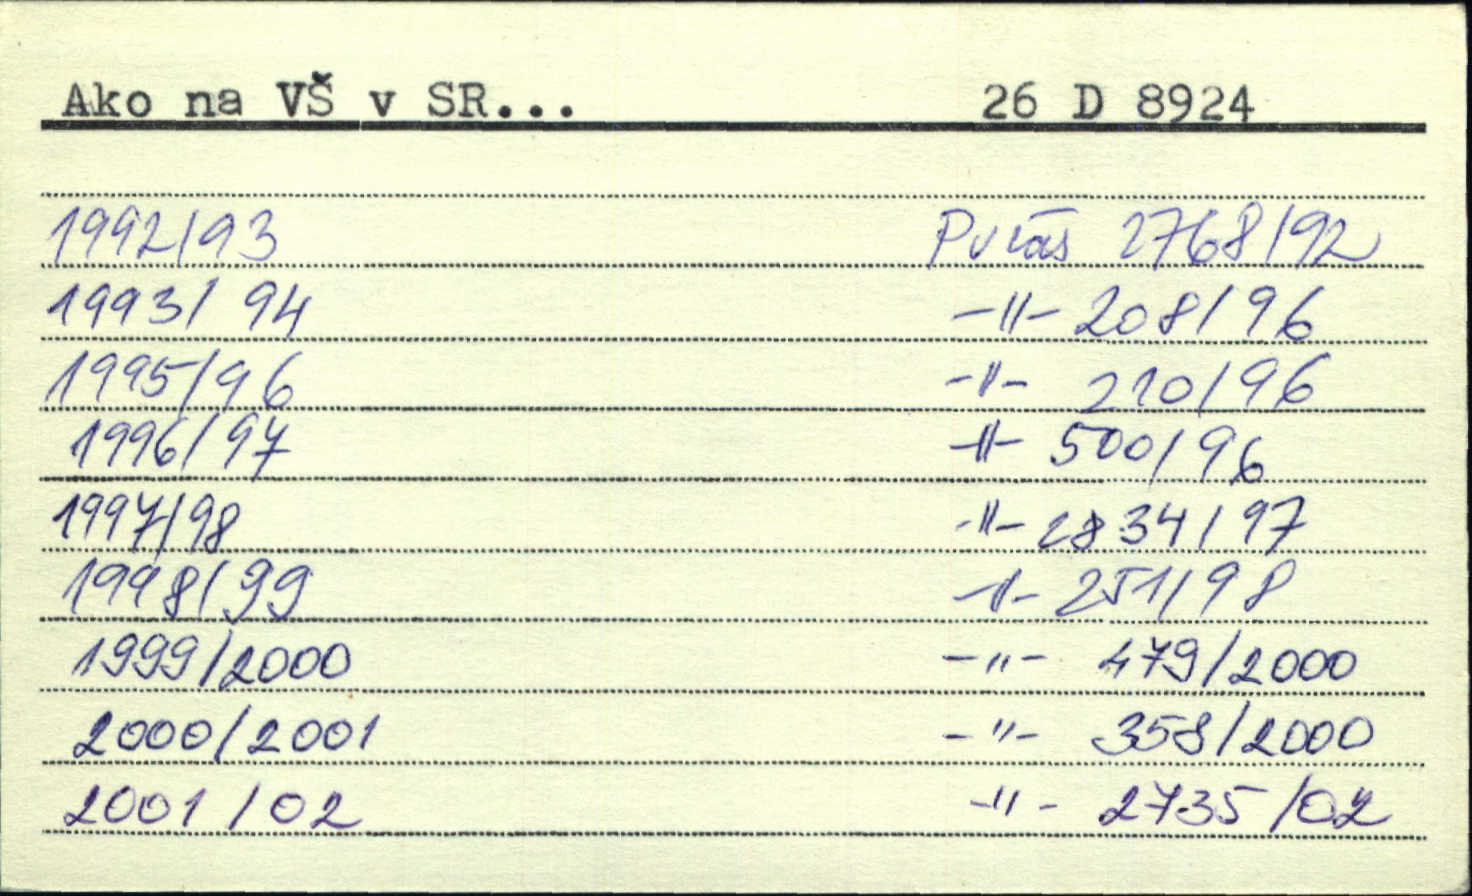 Ako na VŠ v SR... 26 D 8924
1992/93 2768/92
1993/94 -"- 208/96
1995/96 -"- 210/96
1996/97 -"- 500/96
1997/98 -"- 2834/97
1998/99 -"- 251/98
1999/2000 -"- 479/2000
2000/2001 -"- 358/2000
2001/02 -"- 2735/02